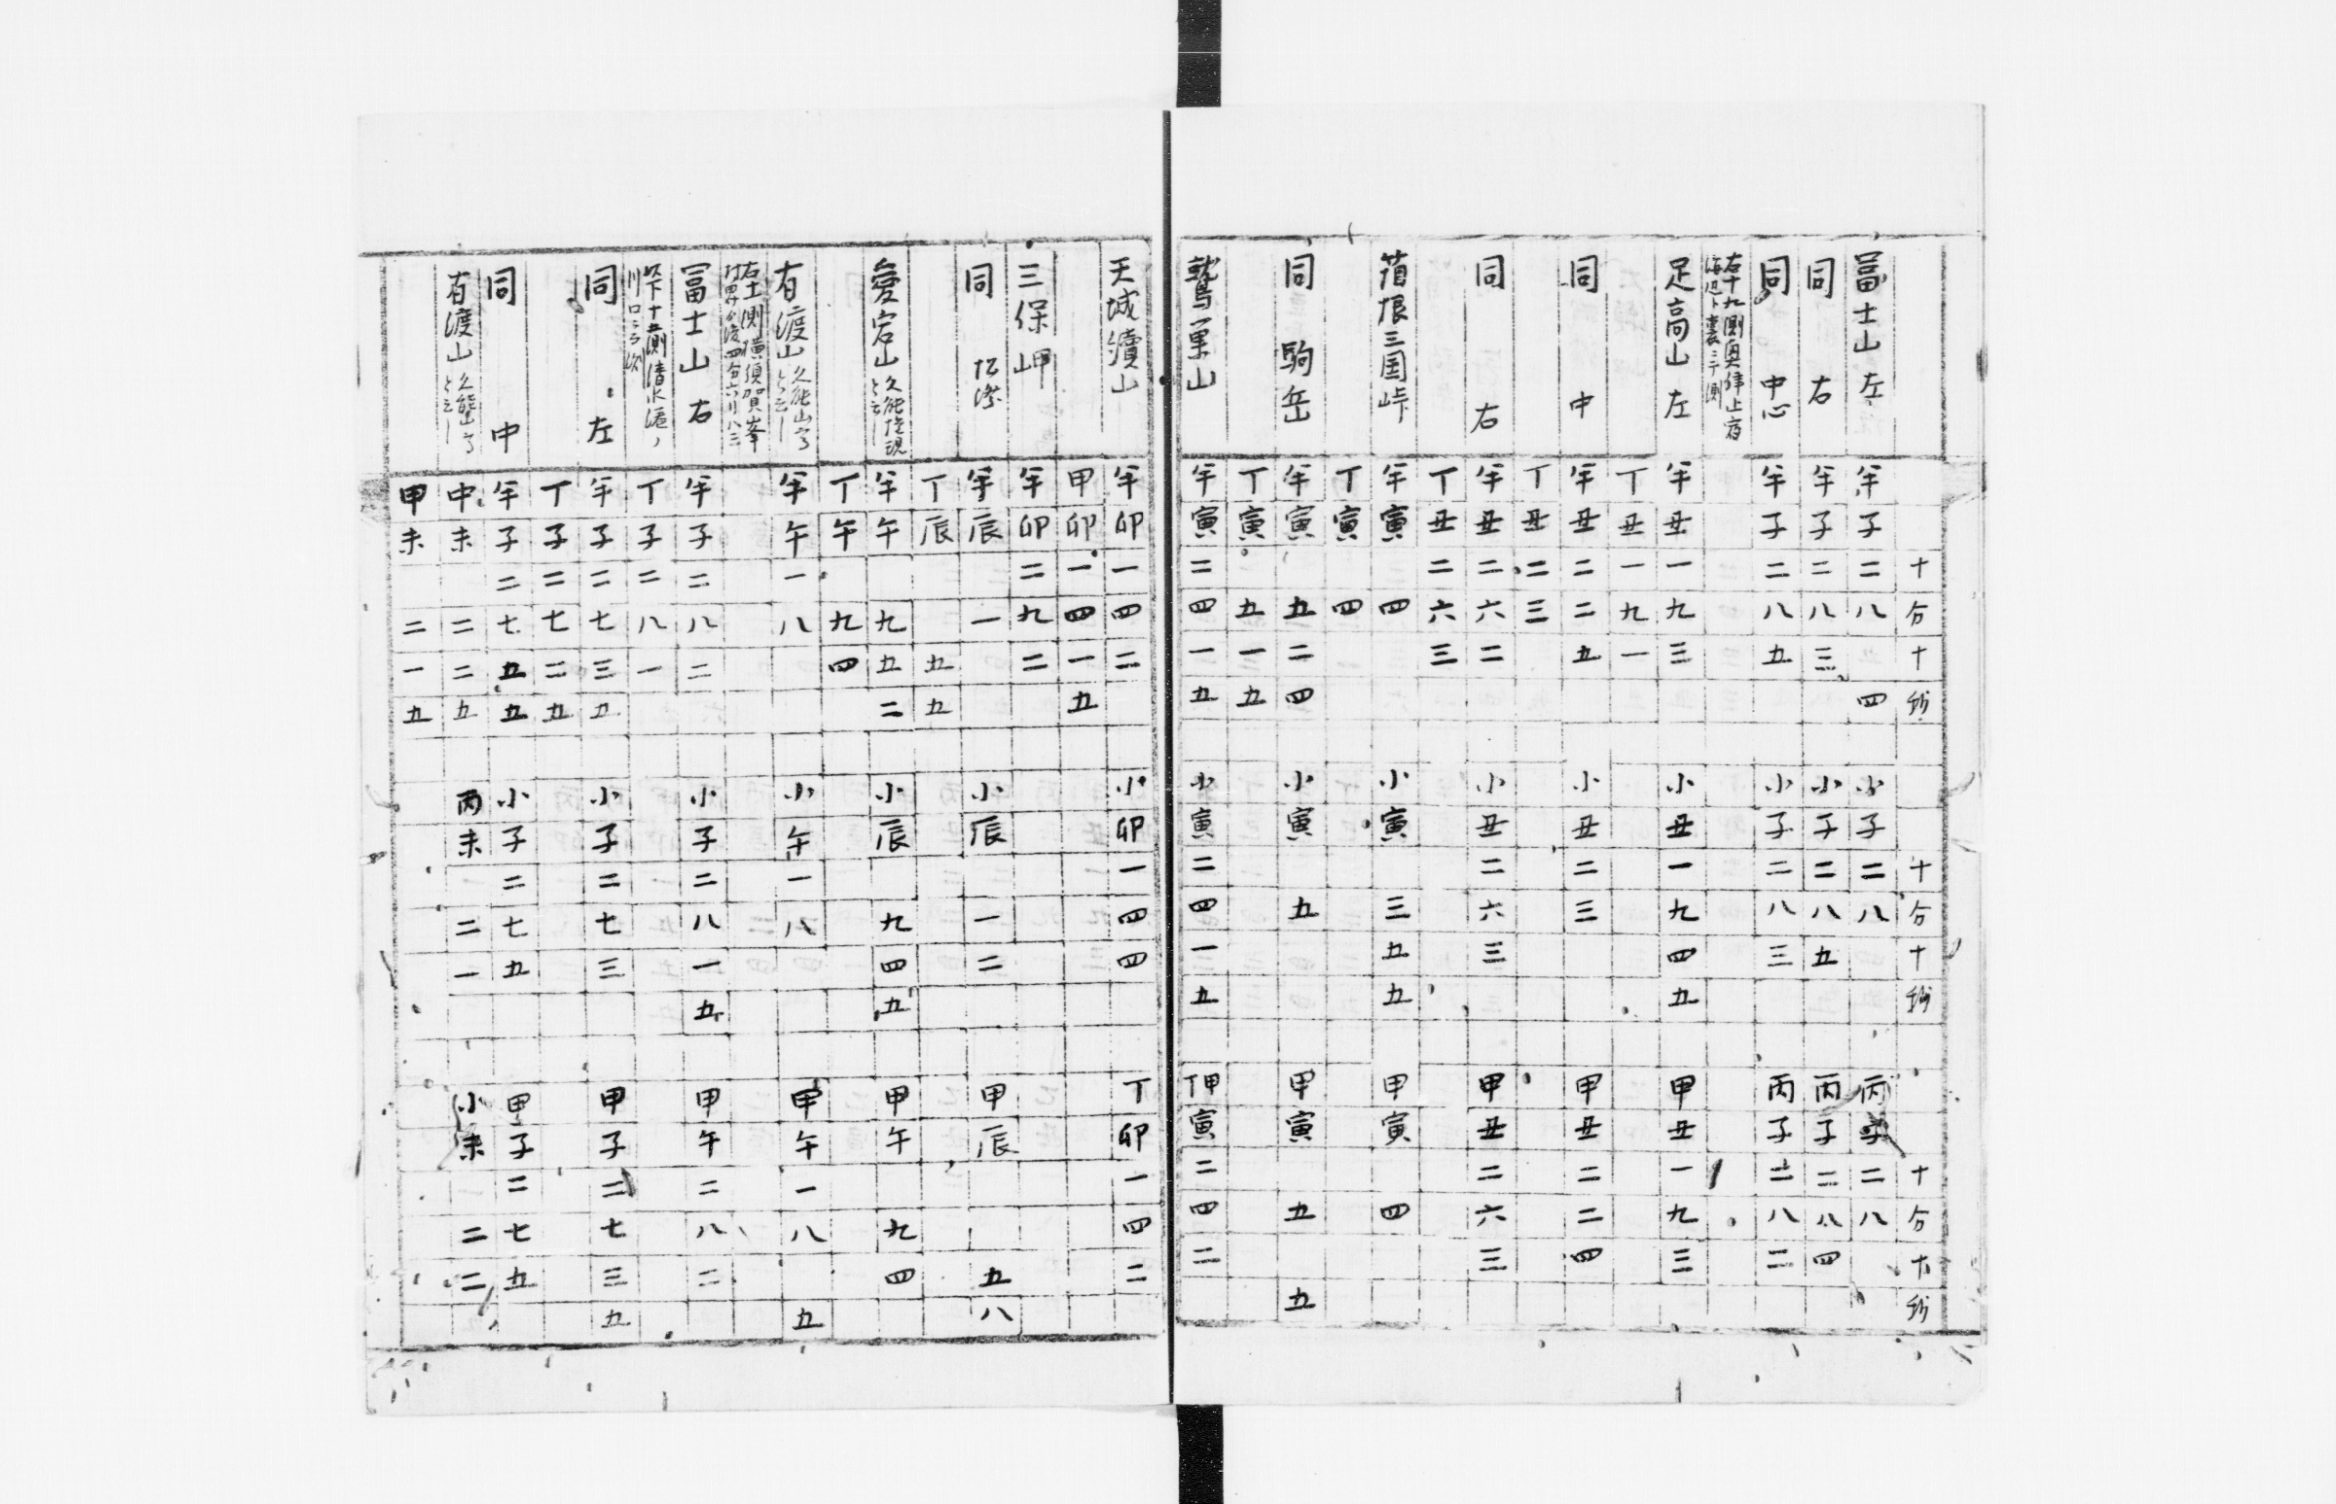 十 分 十 秒 十 分 十 秒 十 分 十 秒
冨士山 左 半 子 二 八 四 小 子 二 八 丙 子 二 八
同 右 半 子 二 八 三 小 子 二 八 五 丙 子 二 八 四
同 中心 半 子 二 八 五 小 子 二 八 三 丙 子 二 八 二
右十九測奥津止宿
海辺ト裏ニテ測
足高山 左 半 丑 一 九 三 小 丑 一 九 四 五 甲 丑 一 九 三
丁 丑 一 九 一
同 中 半 丑 二 二 五 小 丑 二 三 甲 丑 二 二 四
丁 丑 二 三
同 右 半 丑 二 六 二 小 丑 二 六 三 甲 丑 二 六 三
丁 丑 二 六 三
箱根三国峠 半 寅 四 小 寅 三 五 五 甲 寅 四
丁 寅 四
同 駒岳 半 寅 五 二 四 小 寅 五 甲 寅 五 五
丁 寅 五 一 五
鷲巣山 半 寅 二 四 一 五 小 寅 二 四 一 五 丁甲 寅 二 四 二
天城續山 半 卯 一 四 二 小 卯 一 四 四 丁 卯 一 四 二
甲 卯 一 四 一 五
三保岬 半 卯 二 九 二
同 松際 半 辰 一 小 辰 一 二 甲 辰 五 八
丁 辰 五 五
愛宕山 半 午 九 五 二 小 辰 九 四 五 甲 午 九 四
丁 午 九 四
有渡山 半 午 一 八 小 午 一 八 甲 午 一 八 五
冨士山 右 半 子 二 八 二 小 子 二 八 一 五 甲 午 二 八 二
以下十五測清水湊ノ
川口ニテ測
丁 子 二 八 一
同 左 半 子 二 七 三 五 小 子 二 七 三 甲 子 二 七 三 五
丁 子 二 七 二 五
同 中 半 子 二 七 五 五 小 子 二 七 五 甲 子 二 七 五
有渡山 中 未 二 二 五 丙 未 二 一 小 未 二 二
甲 未 二 一 五